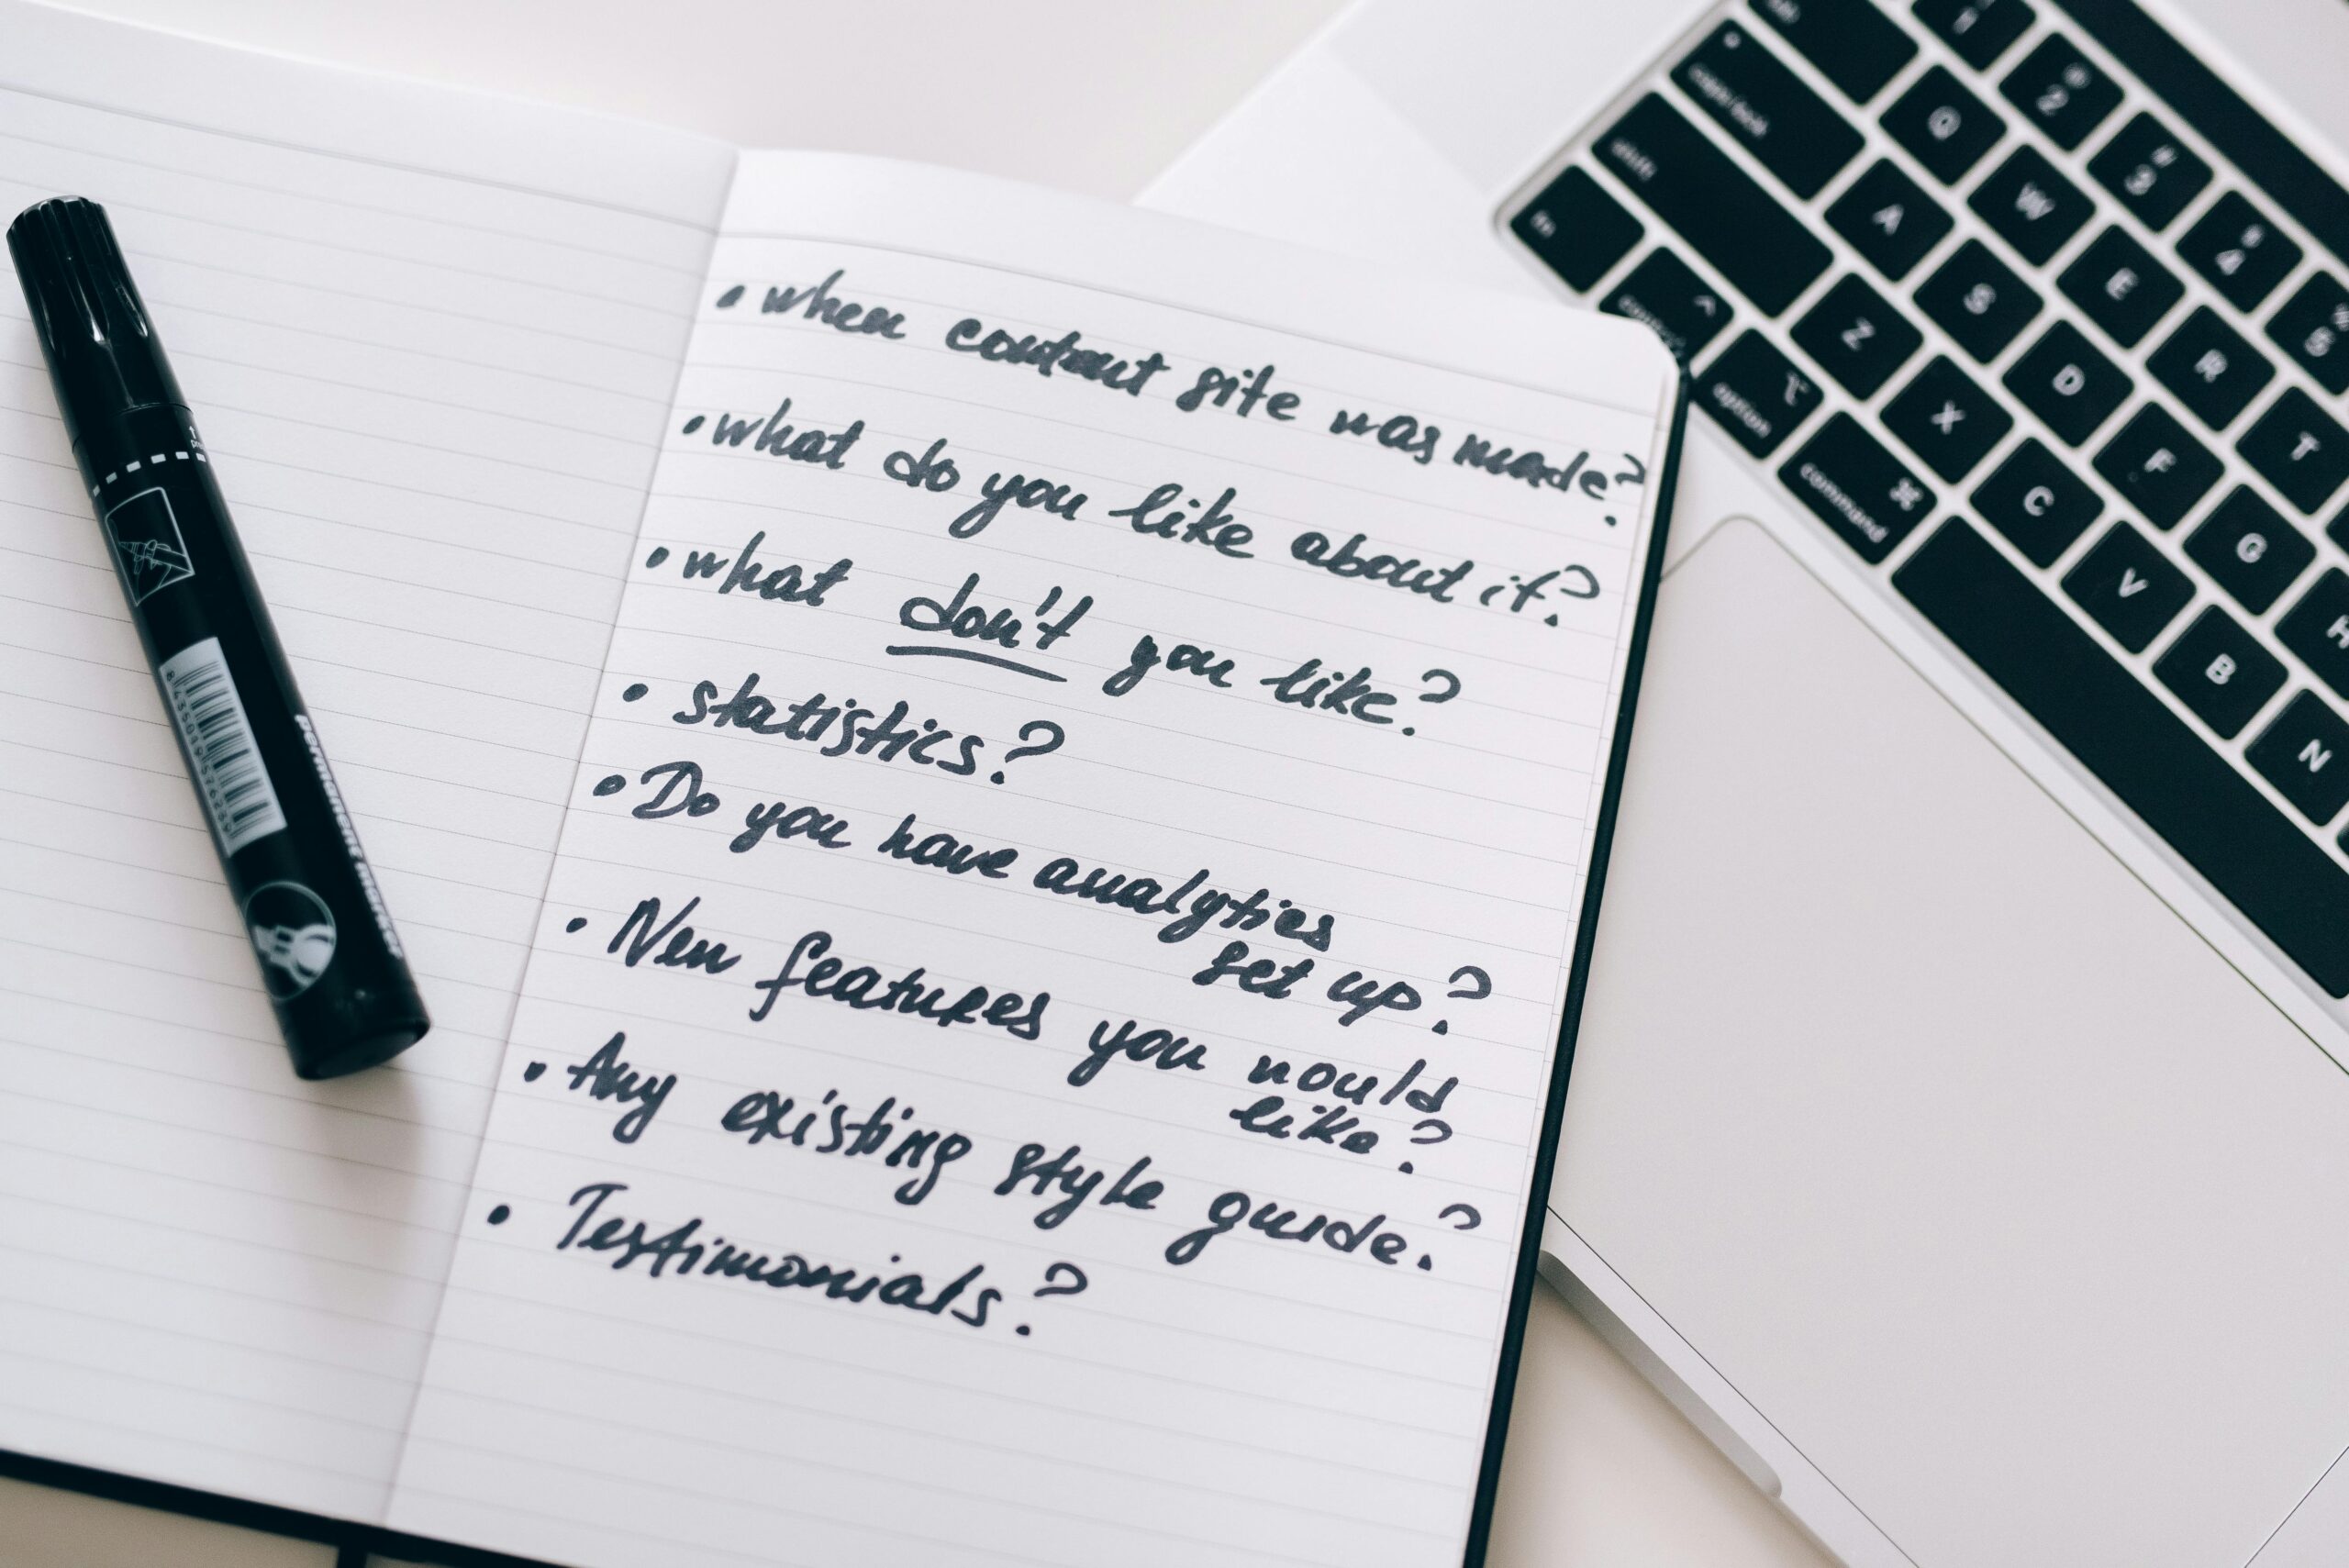 • when site was made?
• what do you like about it?
• what don't you like?
• statistics?
• Do you have analytics
set up?
• New features you would
like?
• Any existing style guide?
• Testimonials?
permanent marker
1 @ 2 # 3 $ 4 % 5
Q W E R T
caps lock A S D F G H
shift Z X C V B N
fn ^ control ⌥ option ⌘ command